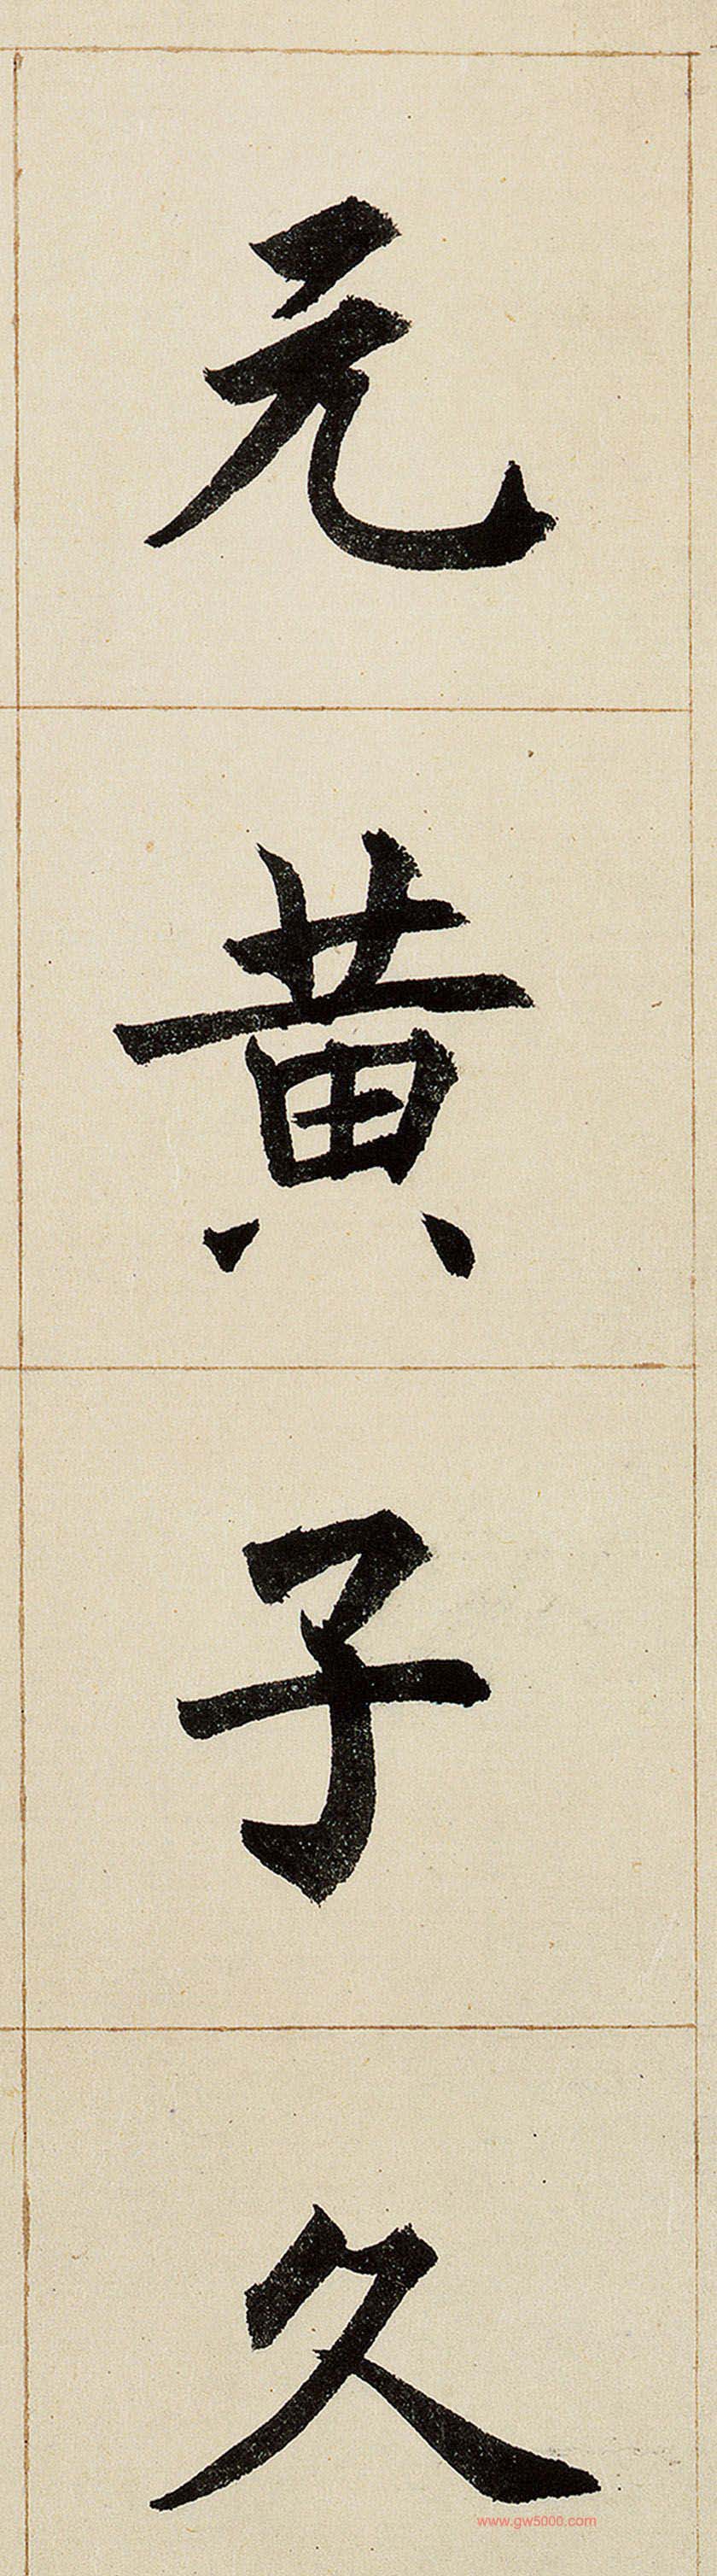 元黄子久
www.gw5000.com